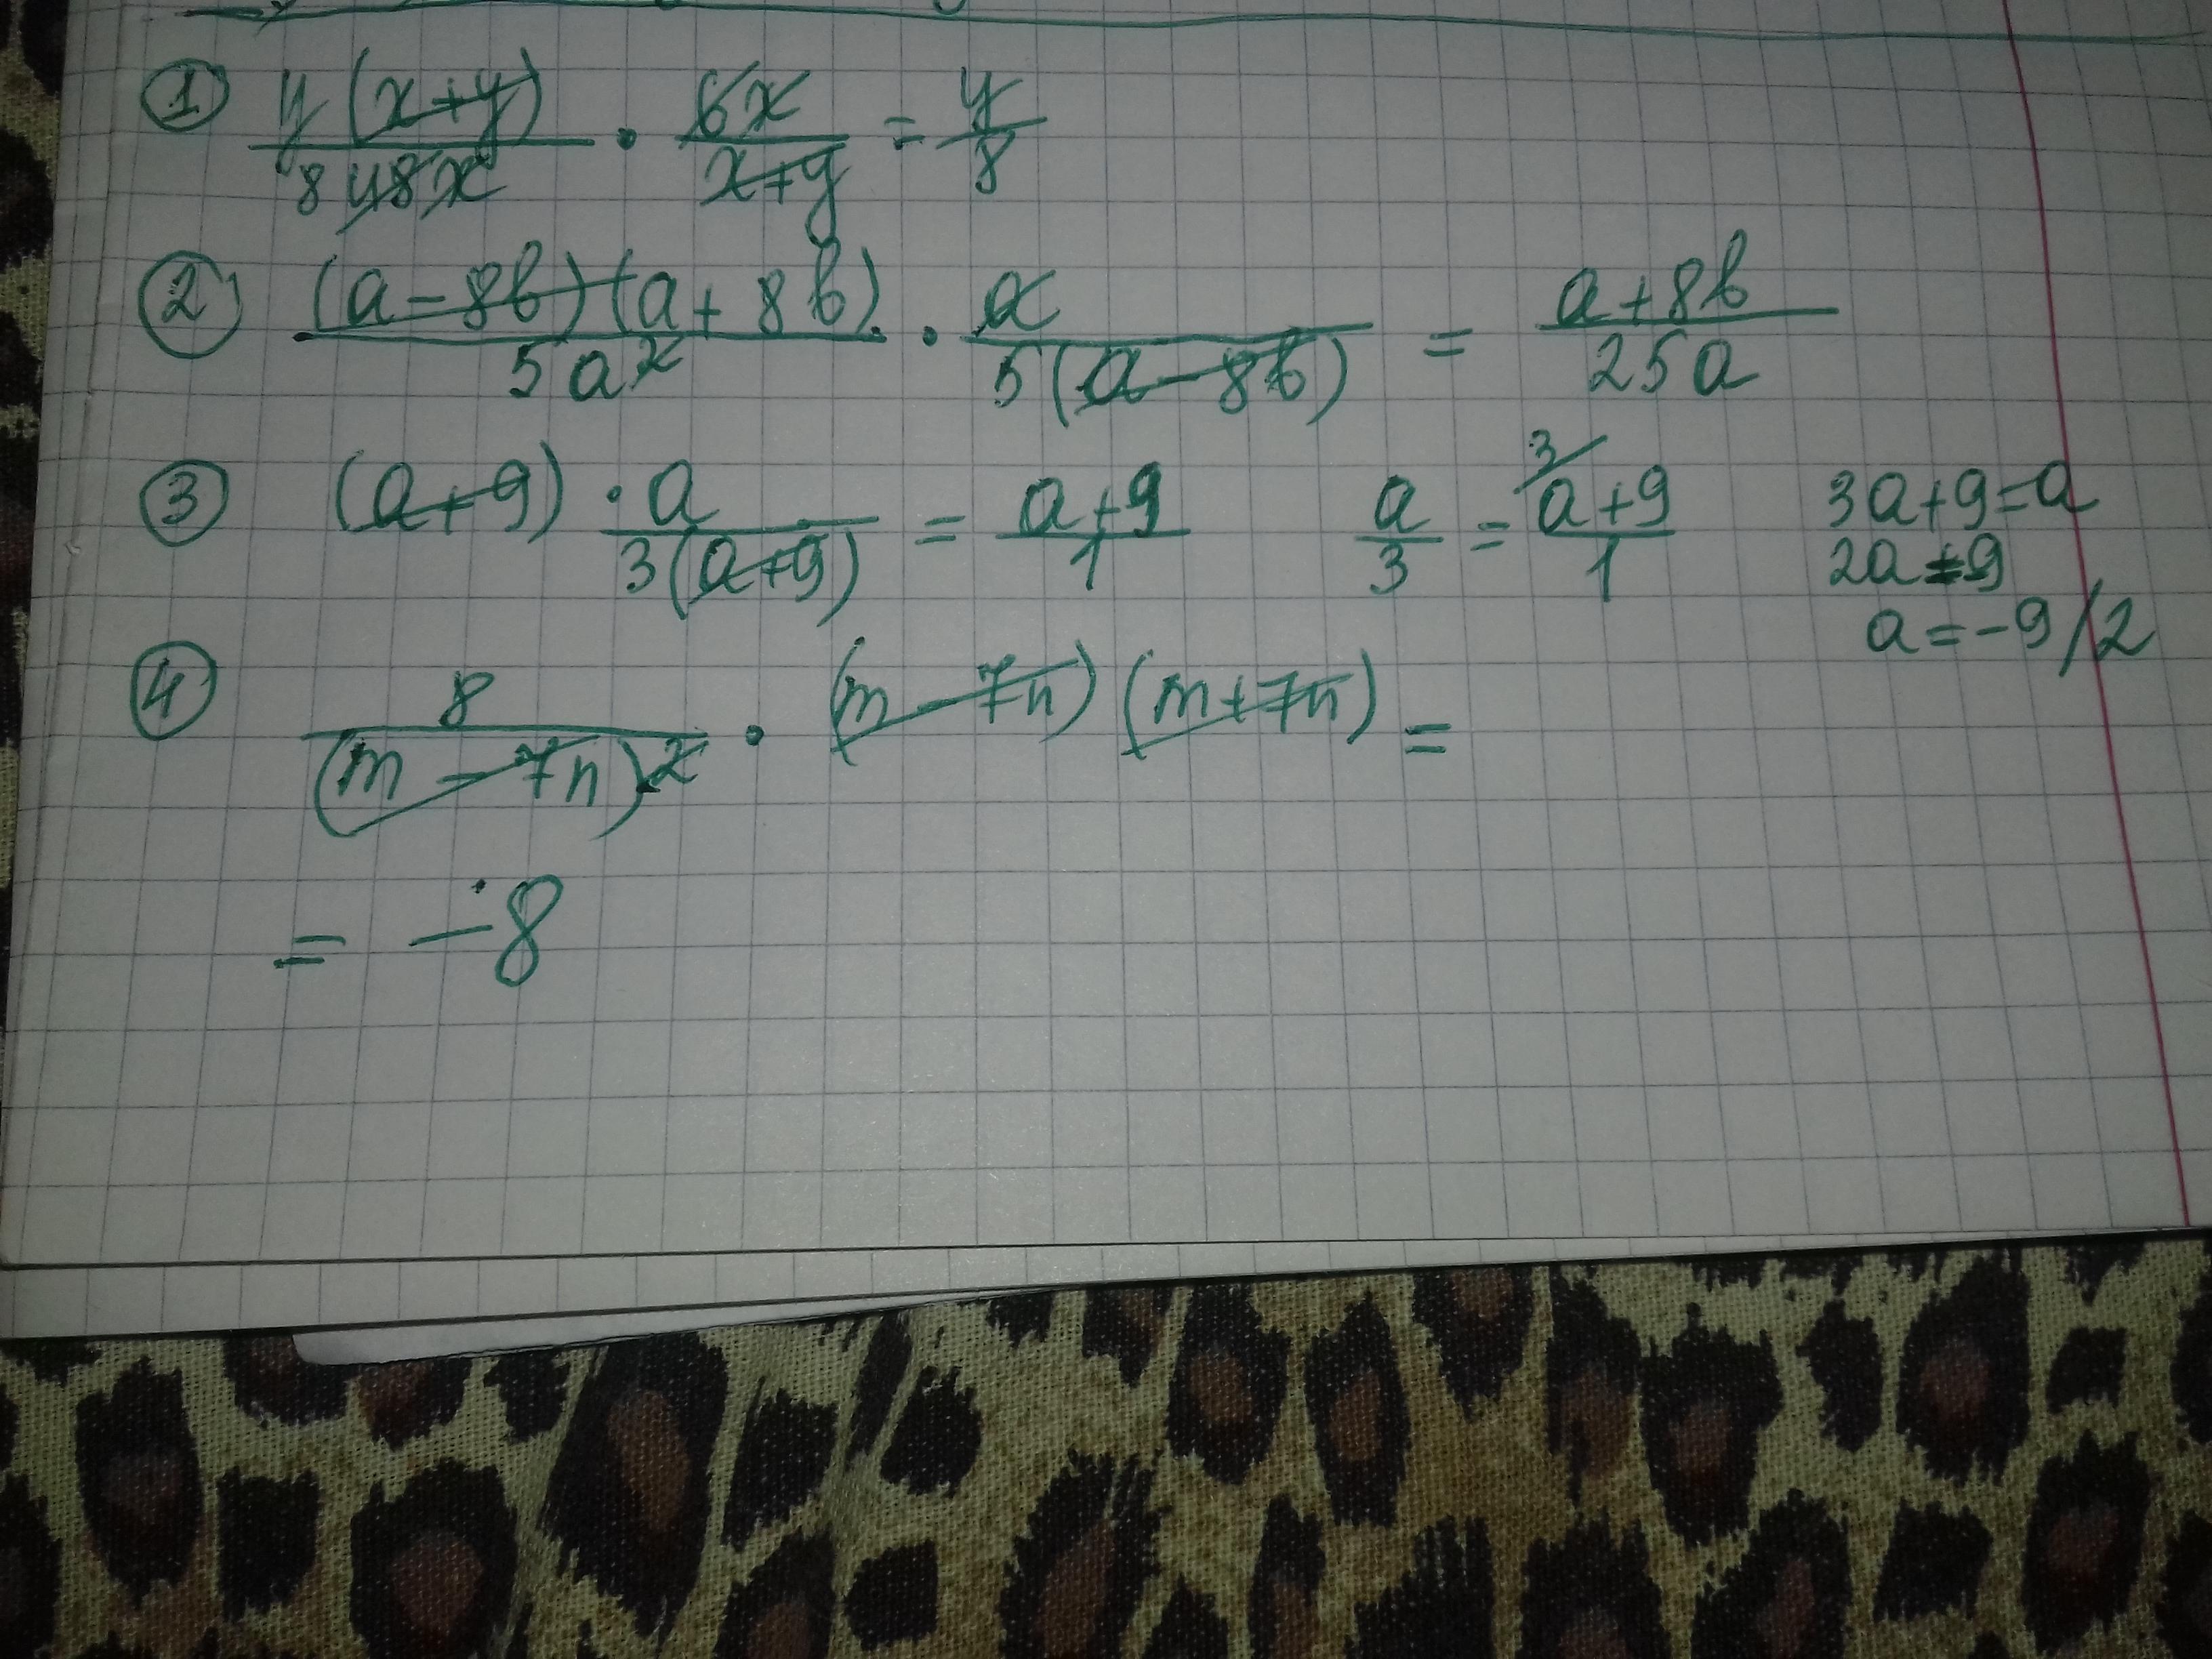 ① y(x+y)/8 48x · 6x/x+y = y/8
② (a-8b)(a+8b)/5a² · a/5(a-8b) = a+8b/25a
③ (a+9) · a/3(a+9) = a+9/1 a/3 = 3/ a+9/1 3a+9=a
2a=-9
a=-9/2
④ 8/(m-7n)² · (m-7n)(m+7n) =
= -8